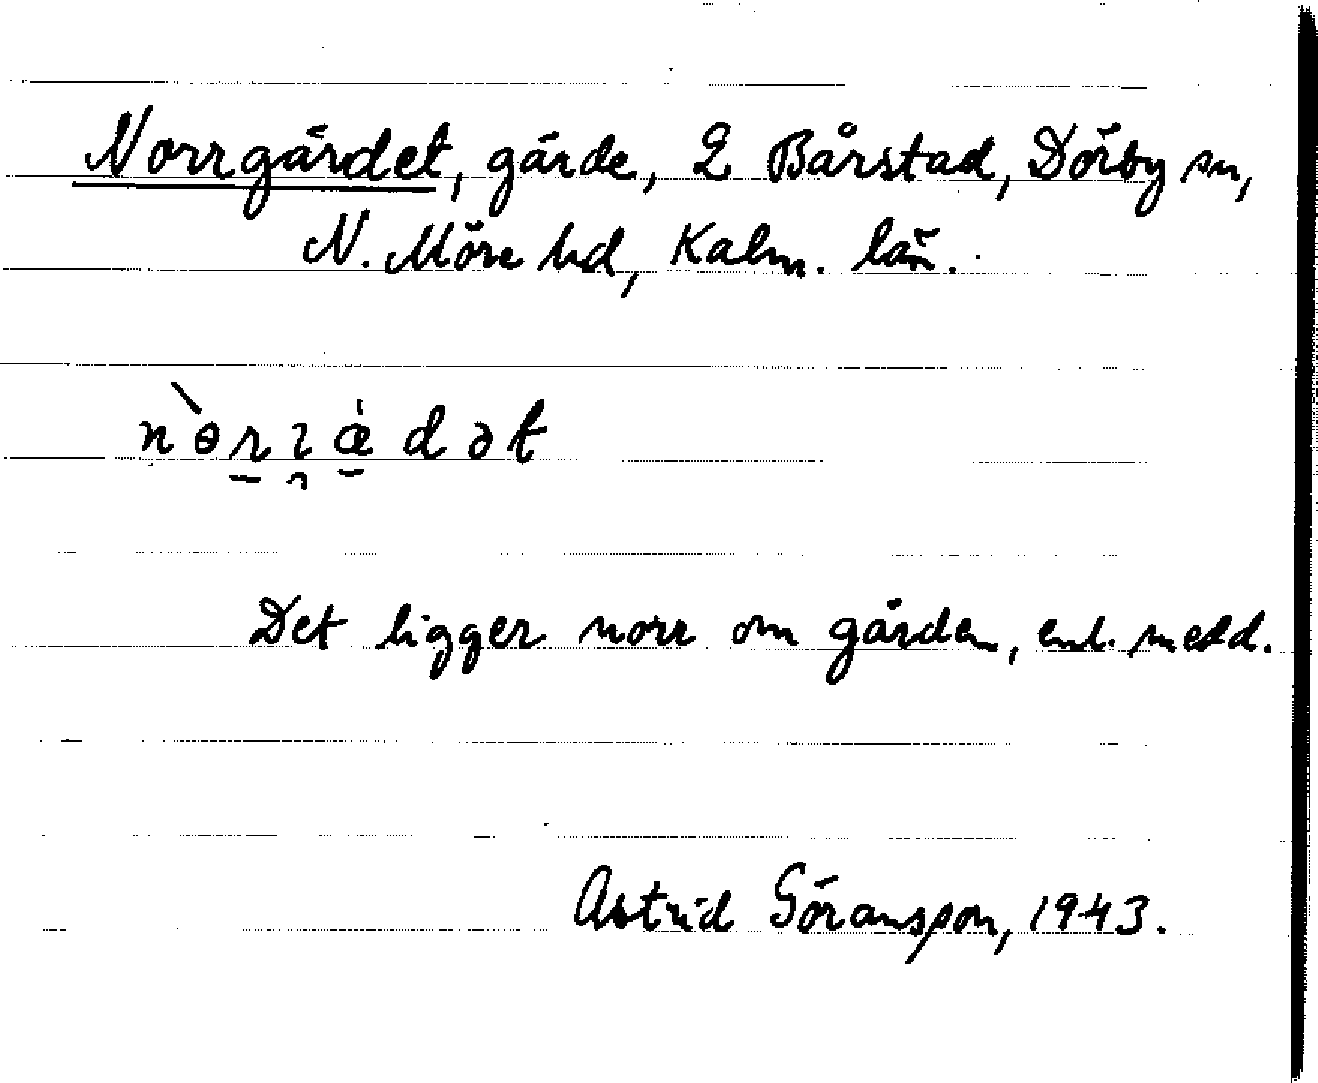 Norrgärdet, gärde, 2 Bårstad, Dörby sn,
N. Möre hd, Kalm. län.
Det ligger norr om gården, enl. medd.
Astrid Göransson, 1943.